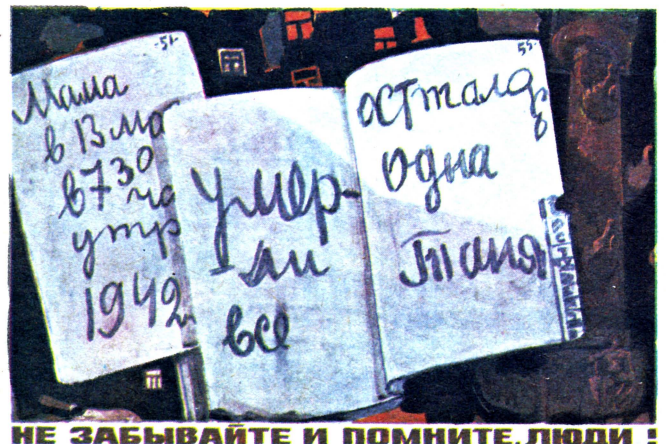 -51-
Мама
в 13 ма
в 730
ча
утр
1942
умер-
-ли
все
55-
осталась
одна
Таня
НЕ ЗАБЫВАЙТЕ И ПОМНИТЕ, ЛЮДИ !